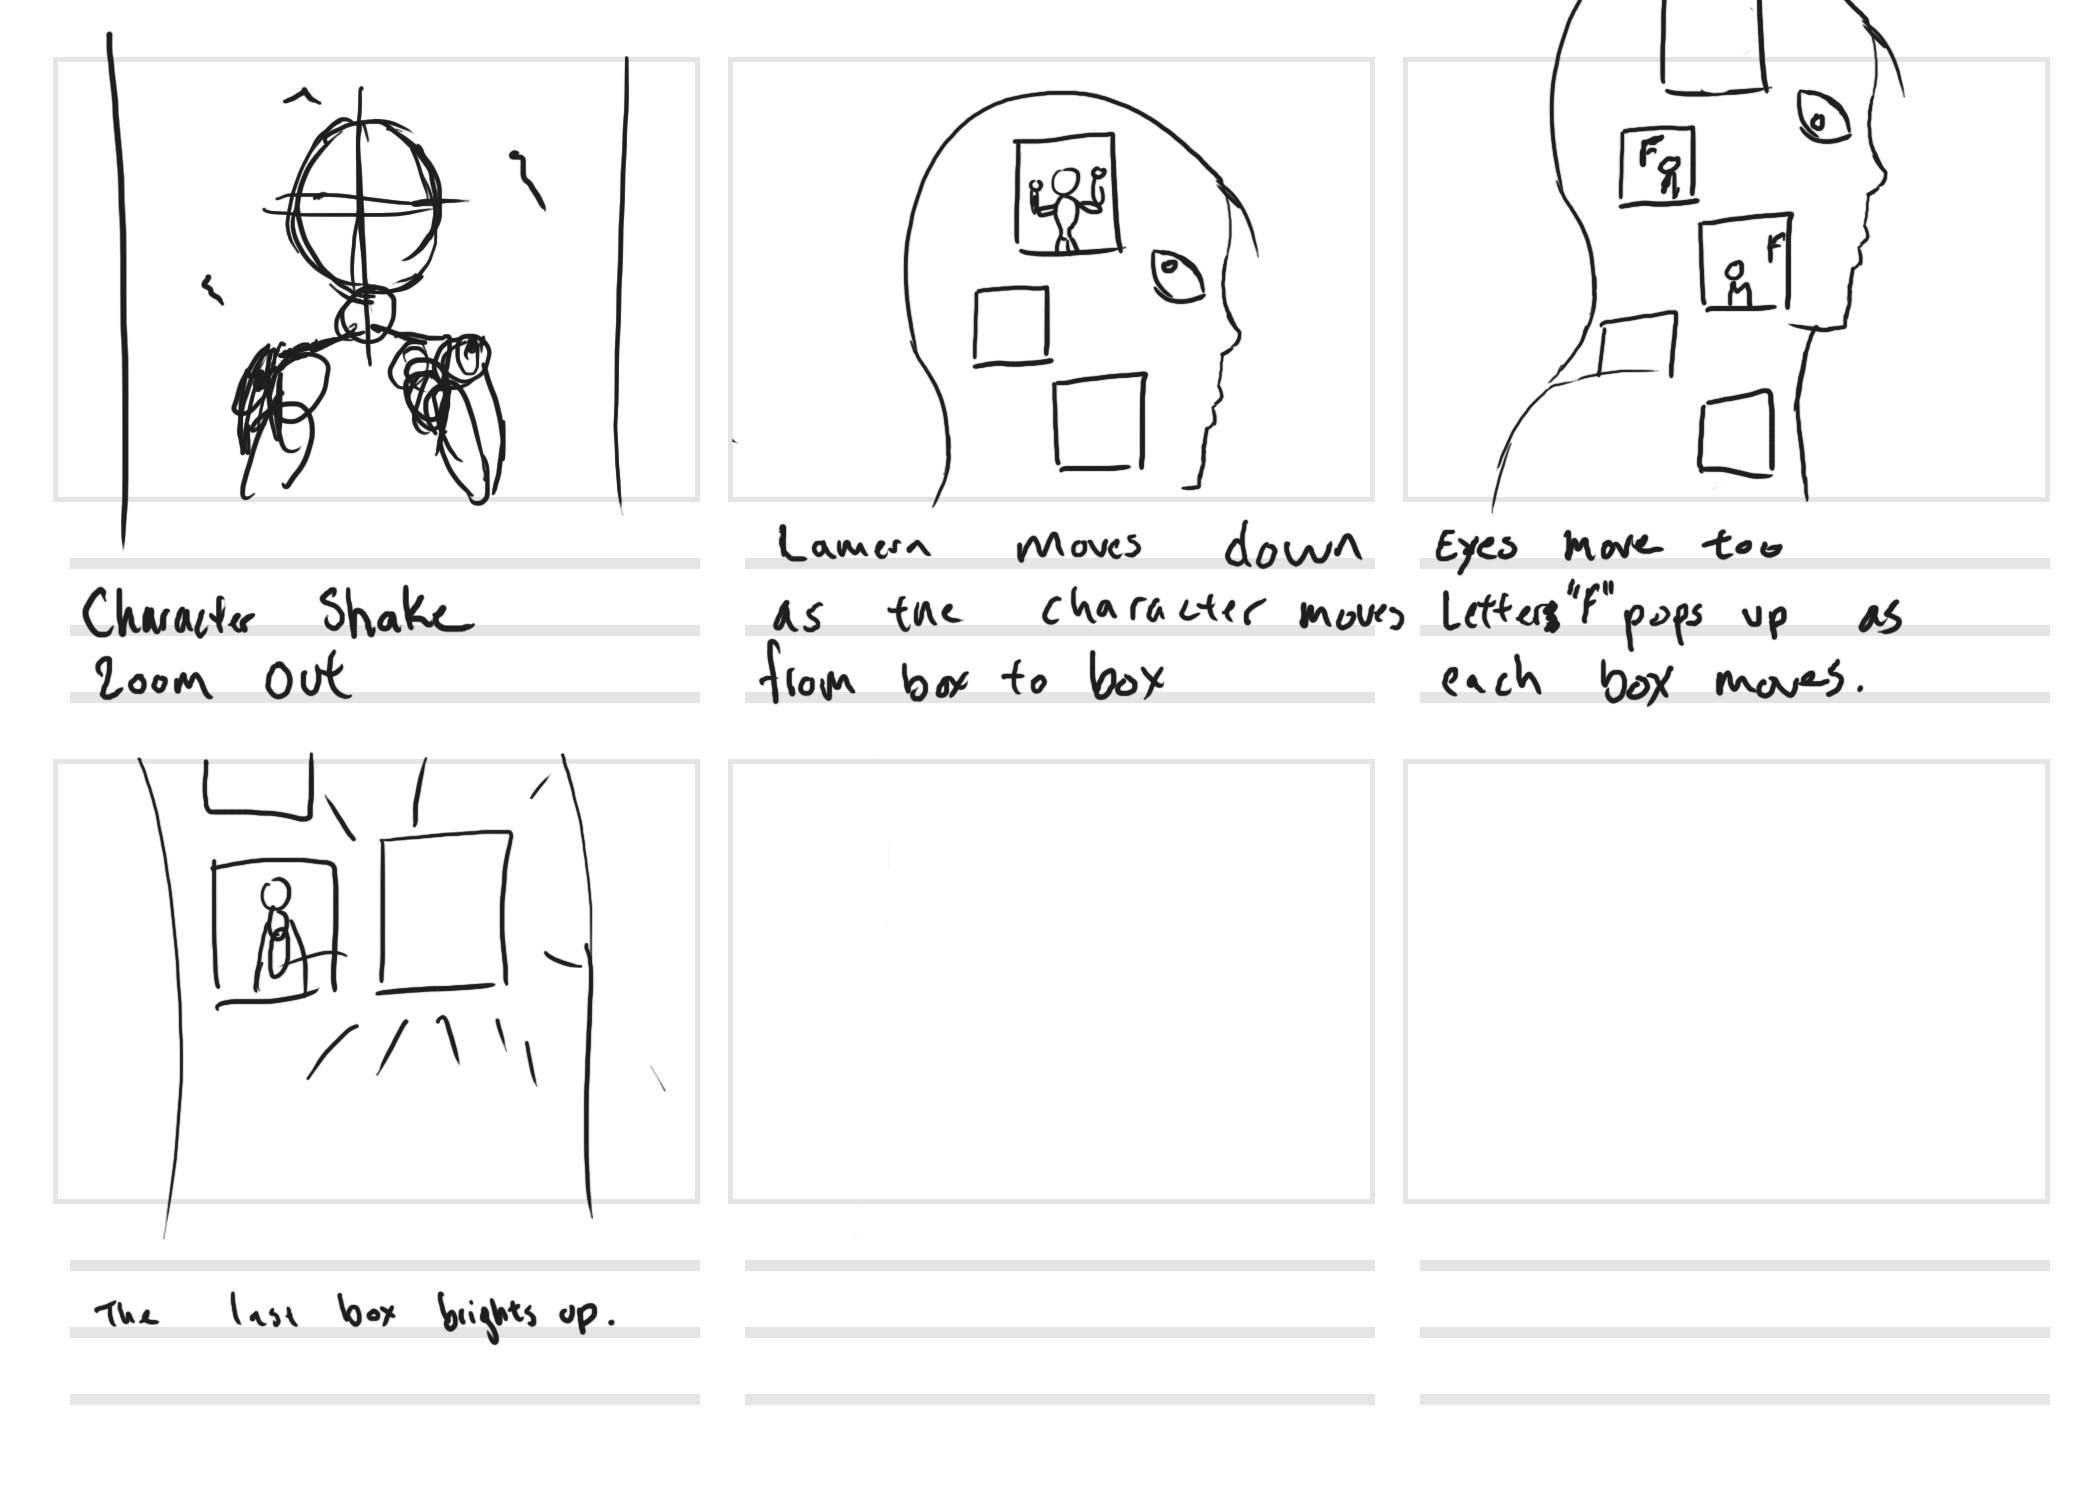 F
F
Character Shake
Zoom Out
Camera moves down
as the character moves
from box to box
Eyes move too
Letters "F" pops up as
each box moves.
The last box brights up.